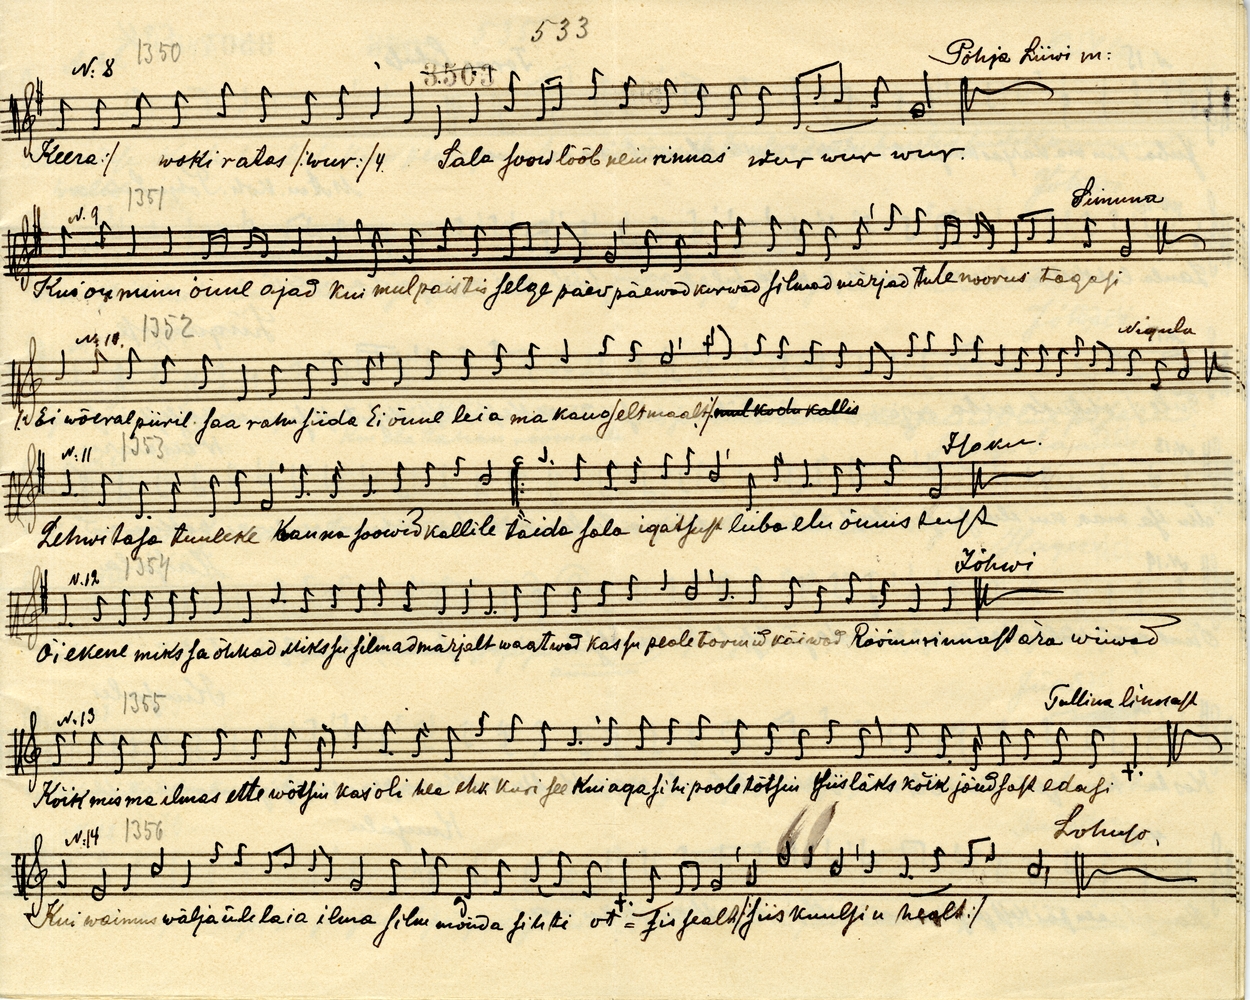 533
N: 8 1350 3503 Põhja Liiwi m:
Keera :/ woki ratas /: wur :/ 4. Sala soow lööb neiu rinnas wur wur wur.
N. 9 1351 Simuna
Kus on minu õnne ajad Kui mul paistis selge päev päewad kurwad silmad märjad tule noorus tagasi
N: 10. 1352 Nigula
Ei wõeral piiril saa rahu siida Ei õnne leia ma kaugselt maalt mul kodu kallis
N. 11 1353
Lehwita sa tuuleke Kanna soowid kallile täida sala igatsust luba elu õnnistust
N. 12 1354 Jõhwi
Oi ekene miks sa õhkad Miks su silmad märjalt waatwad kas su peale tormid käiwad Rõõmu rinnast ära wiiwad
N. 13 1355 Tallina linnast
Kõik mis ma ilmas ette wõtsin kas oli hea ehk kuri see Kui aga sihi poole tõtsin siis läks kõik jõudsast edasi
N: 14 1356 Lohuso.
Kui waimus wälja üle laia ilma silm mõnda sihti ot = sis sealt /: siis kuulsin healt :/